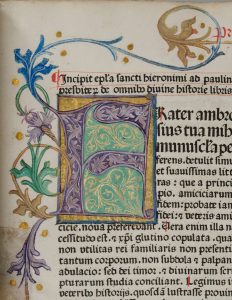 Incipit epl̃a sancti hieronimi ad paulin
presbiteꝝ de omnibꝰ diuine historie libris
Frater ambro
sius tua mih
munuscl̃a pe
ferens. detulit simu
et suauissimas litt
ras: que a princip
amiciciarum
fidem: probate iam
fidei: et veteris ami
cicie. noua preferebant. Uera enim ill
cessitudo est. et xp̃i glutino copulata: qua
non utilitas rei familiaris non presenti
tantum corporum. non subdola et palpan
adulacio: sed dei timor. et diuinarum scri
pturarum studia conciliant. Legimus i
veteribꝰ historijs. quosdã lustrasse prouin